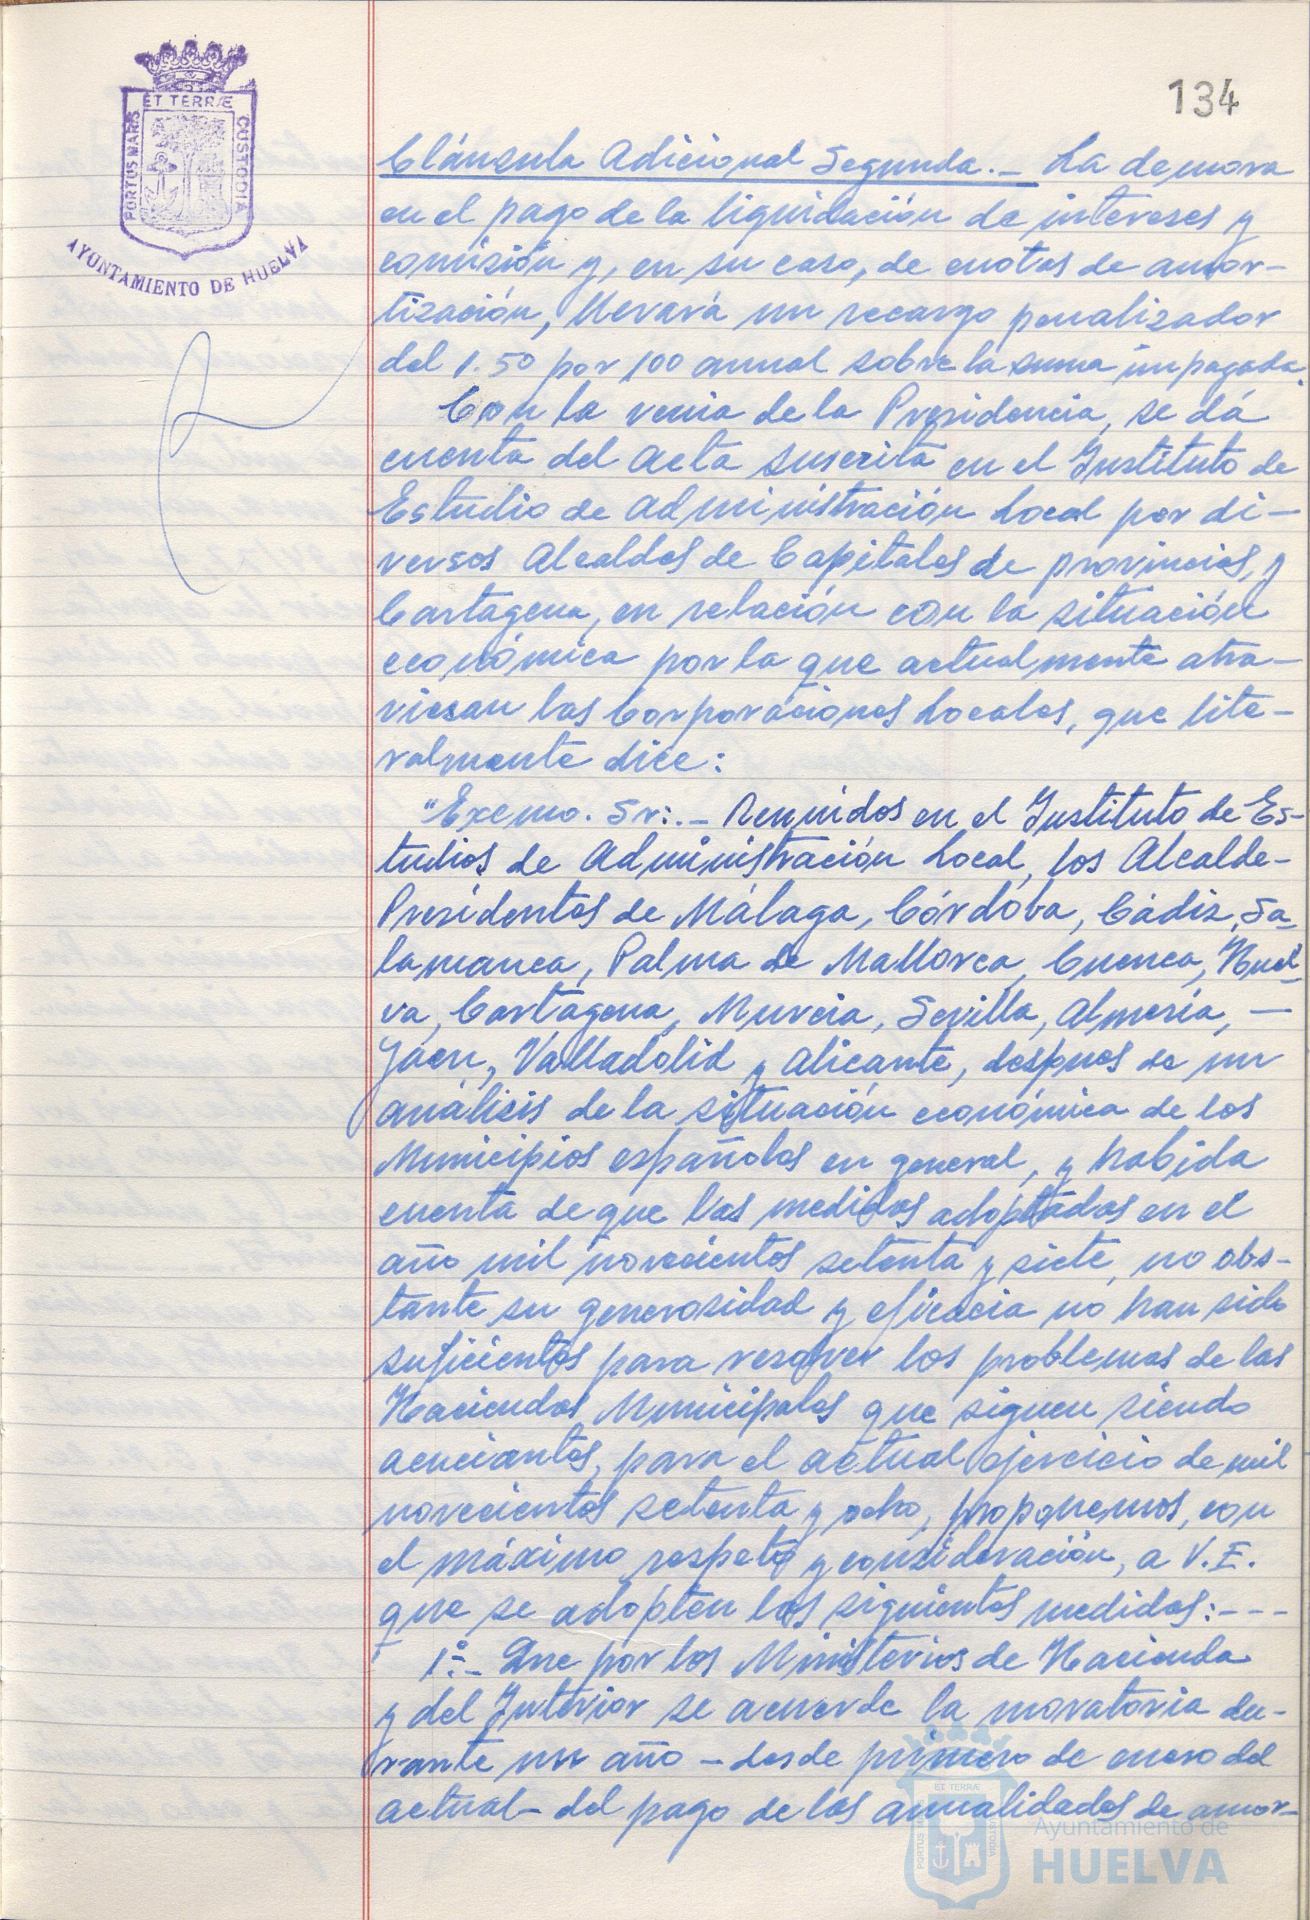 134
ET TERRÆ
PORTUS MARIS
CUSTODIA
AYUNTAMIENTO DE HUELVA
Cláusula Adicional Segunda.- La demora
en el pago de la liquidación de intereses y
comisión y, en su caso, de cuotas de amor-
tización, llevará un recargo penalizador
del 1.50 por 100 anual sobre la suma impagada.
Con la venia de la Presidencia, se dá
cuenta del Acta suscrita en el Instituto de
Estudio de Administración Local por di-
versos Alcaldes de Capitales de provincias, y
Cartagena, en relación con la situación
económica por la que actualmente atra-
viesan las Corporaciones Locales, que lite-
ralmente dice:
"Excmo. Sr:.- Reunidos en el Instituto de Es-
tudios de Administración Local, los Alcalde-
Presidentes de Málaga, Córdoba, Cádiz, Sa-
lamanca, Palma de Mallorca, Cuenca, Huel-
va, Cartagena, Murcia, Sevilla, Almería, -
Jaen, Valladolid y Alicante, despues de un
análisis de la situación económica de los
Municipios españoles en general, y habida
cuenta de que las medidas adoptadas en el
año mil novecientos setenta y siete, no obs-
tante su generosidad y eficacia no han sido
suficientes para resolver los problemas de las
Haciendas Municipales que siguen siendo
acuciantes, para el actual ejercicio de mil
novecientos setenta y ocho, proponemos, con
el máximo respeto y consideración, a V.E.
que se adopten las siguientes medidas:---
1º.- Que por los Ministerios de Hacienda
y del Interior se acuerde la moratoria du-
rante un año - desde primero de enero del
actual - del pago de las anualidades de amor-
ET TERRÆ
Ayuntamiento de
HUELVA